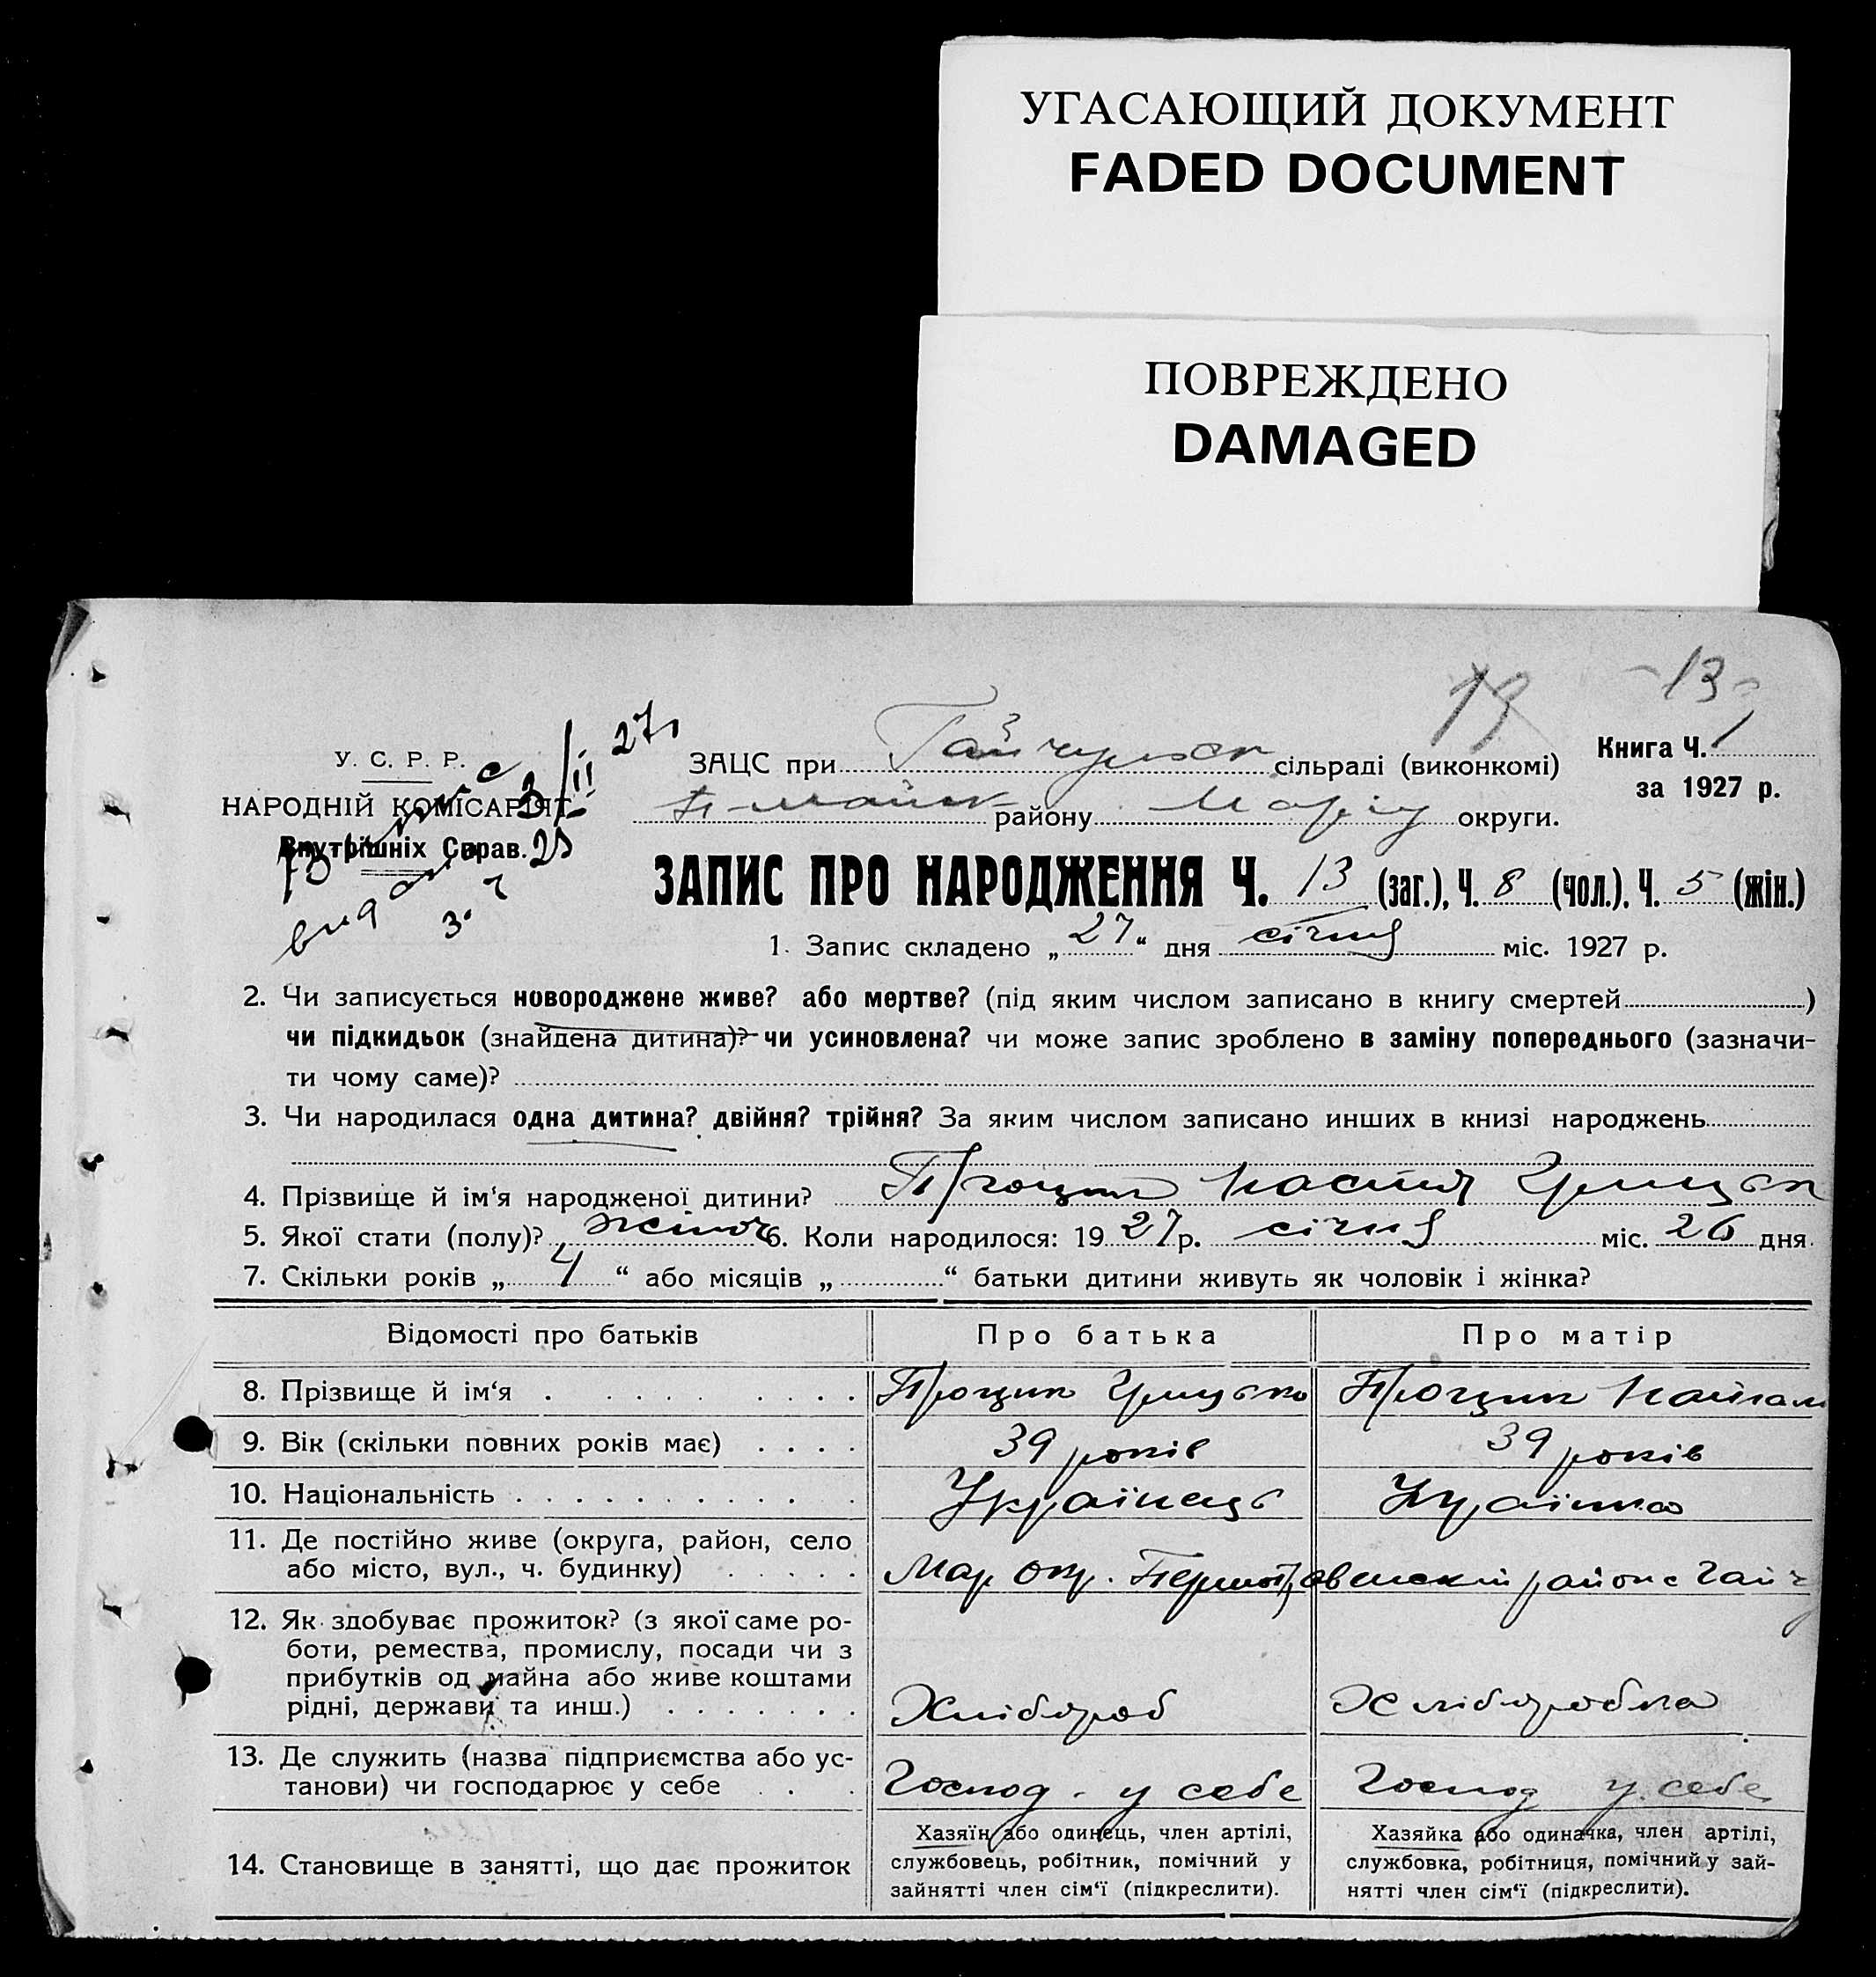 УГАСАЮЩИЙ ДОКУМЕНТ
FADED DOCUMENT
ПОВРЕЖДЕНО
DAMAGED
13
У. С. Р. Р.
НАРОДНІЙ КОМІСАРІЯТ
Внутрішніх Справ.
3/II 27
ЗАЦС при Гайчульск сільраді (виконкомі)
Книга Ч. 1
за 1927 р.
району Маріу округи.
ЗАПИС ПРО НАРОДЖЕННЯ Ч. 13 (заг.), Ч. 8 (чол.). Ч. 5 (жін.)
1. Запис складено „27“ дня січня міс. 1927 р.
2. Чи записується новороджене живе? або мертве? (під яким числом записано в книгу смертей )
чи підкидьок (знайдена дитина)? чи усиновлена? чи може запис зроблено в заміну попереднього (зазначи-
ти чому саме)?
3. Чи народилася одна дитина? двійня? трійня? За яким числом записано инших в книзі народжень
4. Прізвище й ім‘я народженої дитини? Процик Настя
5. Якої стати (полу)? жіноч 6. Коли народилося: 1927 р. січня міс. 26 дня.
7. Скільки років „ 4 “ або місяців „ “ батьки дитини живуть як чоловік і жінка?
Відомості про батьків Про батька Про матір
8. Прізвище й ім‘я Процик Грицько Процик
9. Вік (скільки повних років має) 39 років 39 років
10. Національність Українець Українка
11. Де постійно живе (округа, район, село
або місто, вул., ч. будинку) Мар окр. район с Гайч
12. Як здобуває прожиток? (з якої саме ро-
боти, ремества, промислу, посади чи з
прибутків од майна або живе коштами
рідні, держави та инш.) Хлібороб Хліборобка
13. Де служить (назва підприємства або ус-
танови) чи господарює у себе Господ. у себе Господ у себе
14. Становище в занятті, що дає прожиток
Хазяїн або одинець, член артілі,
службовець, робітник, помічний у
зайнятті член сім‘ї (підкреслити).
Хазяйка або одиначка, член артілі,
службовка, робітниця, помічний у зай-
нятті член сім‘ї (підкреслити).